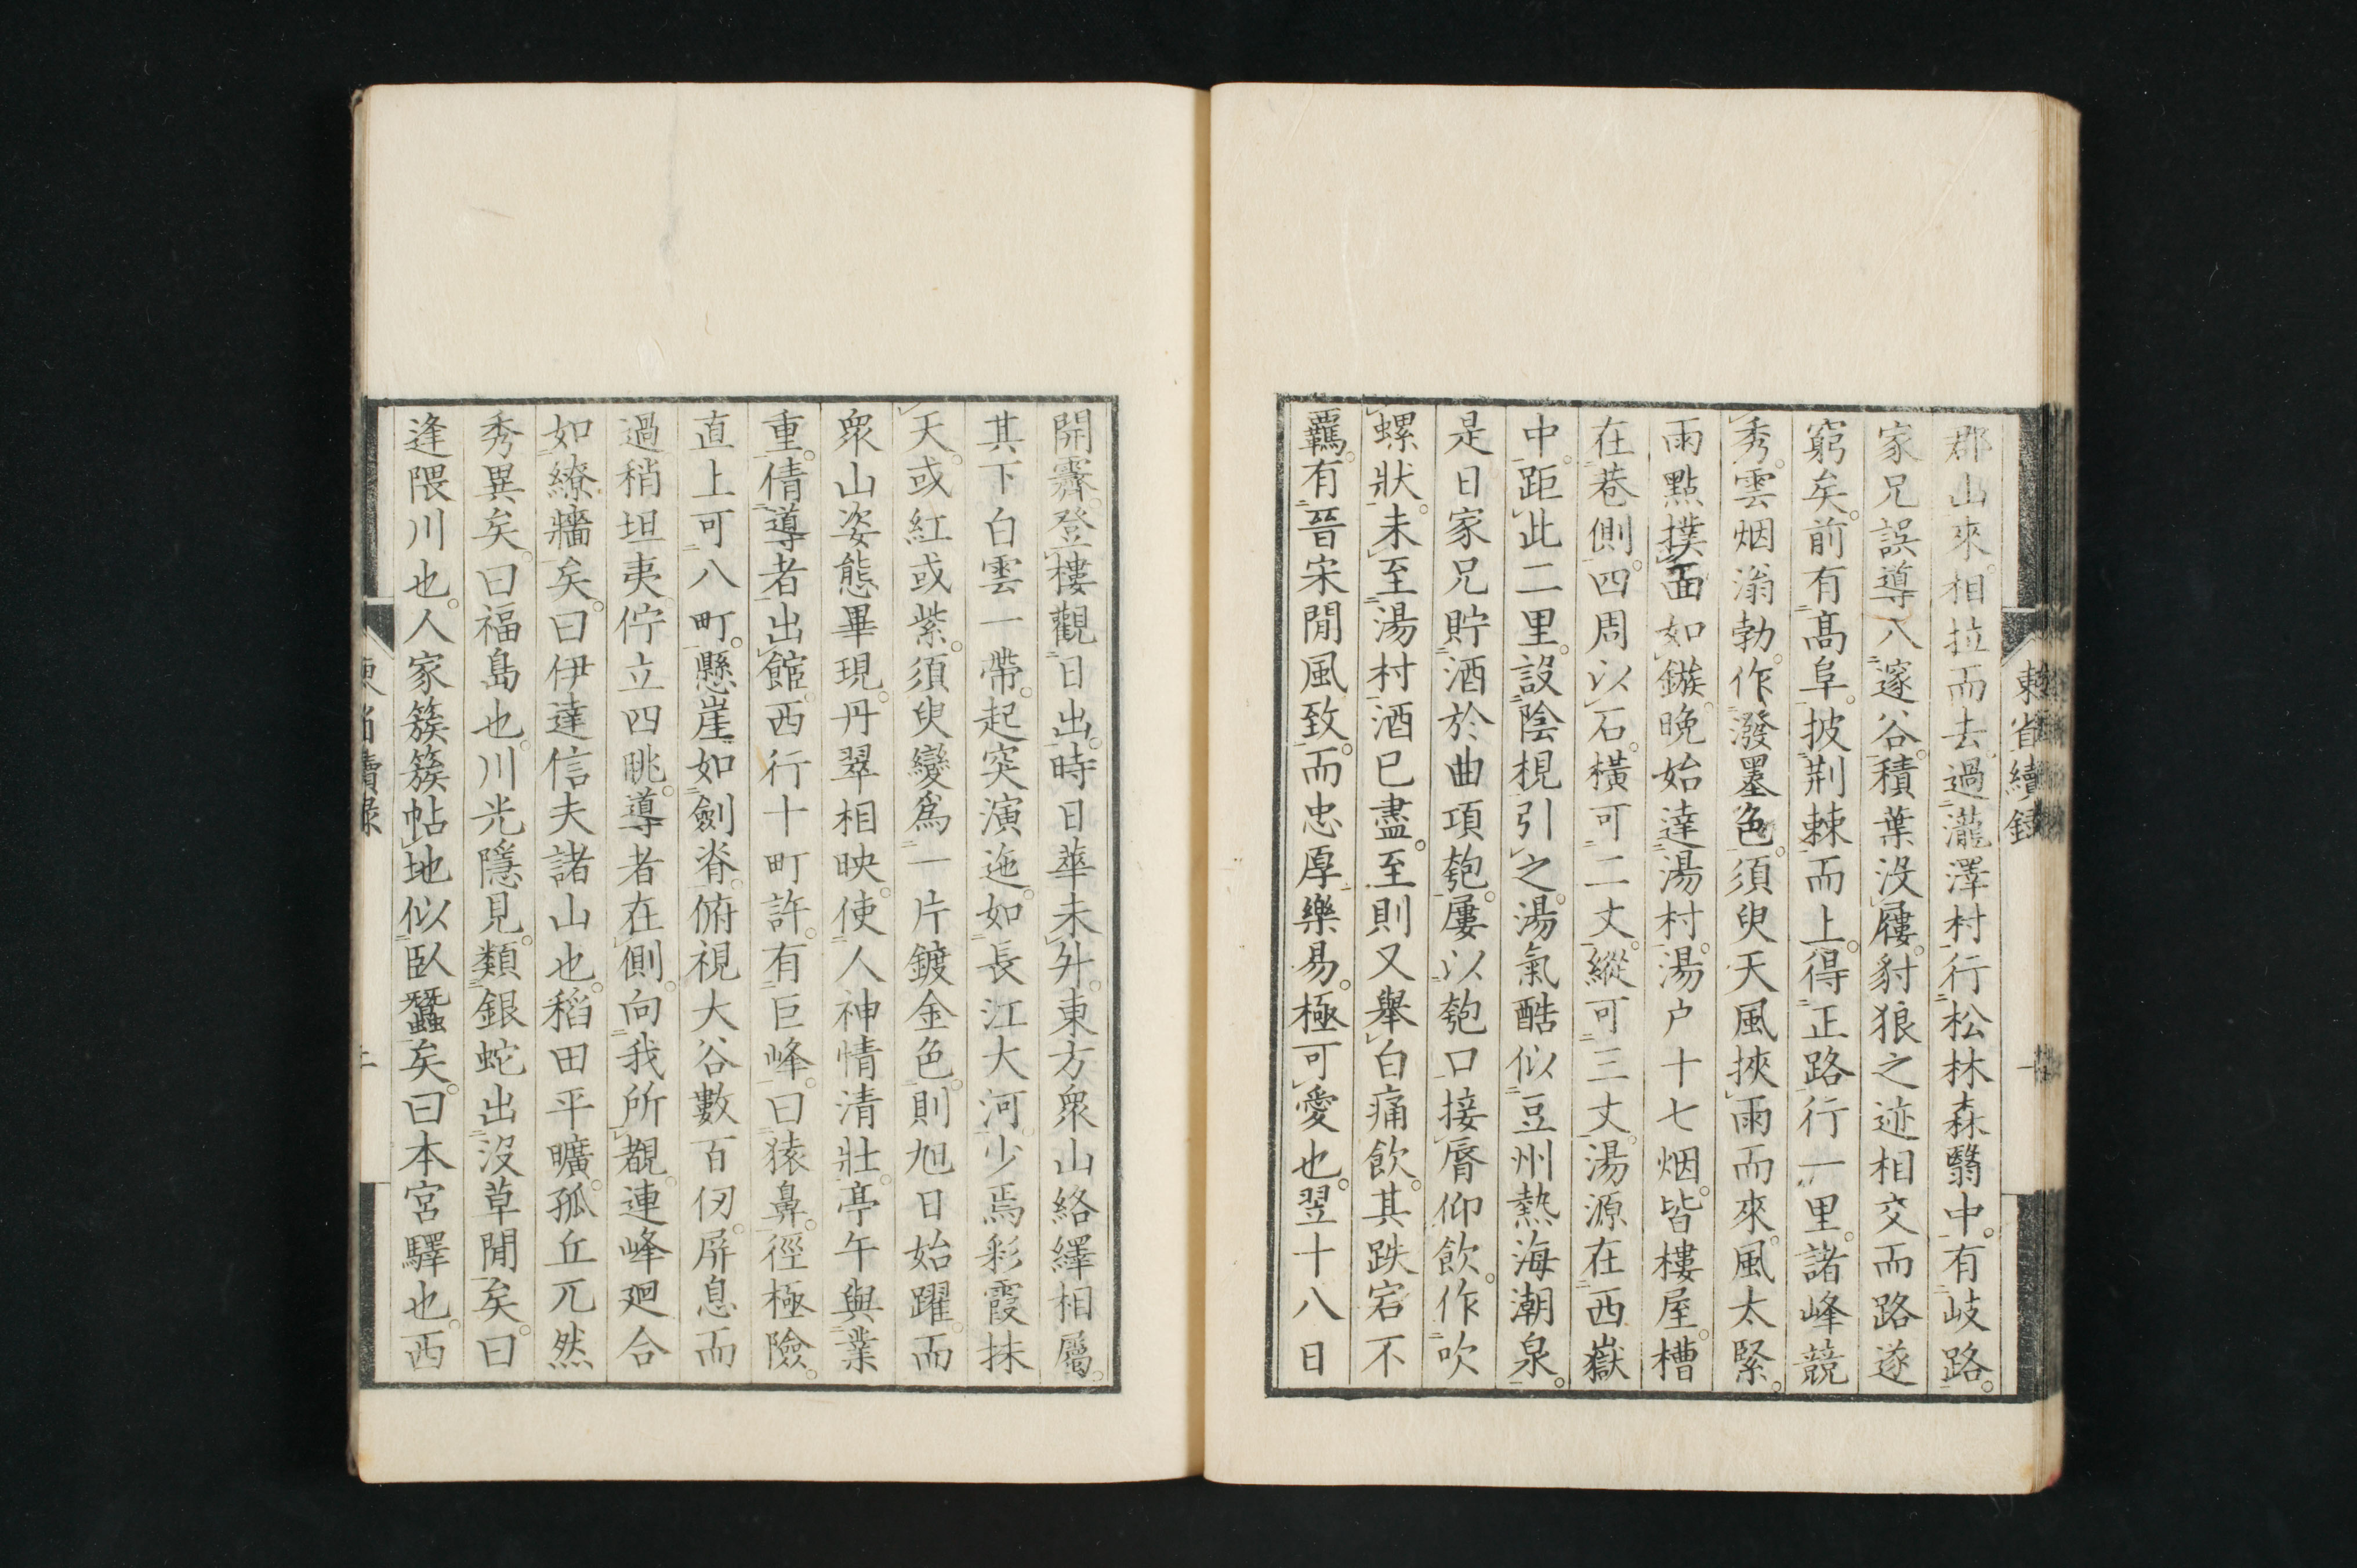 東省續録
郡山來。相拉而去。過瀧澤村。行松林森翳中。有岐路。
家兄誤導入邃谷。積葉沒屨。豺狼之迹相交而路遂
窮矣。前有髙阜。披荆棘而上。得正路。行一里。諸峰競
秀。雲烟滃勃。作潑墨色。須臾天風挾雨而來。風太緊。
雨點撲面如鏃。晩始達湯村。湯户十七烟。皆樓屋。槽
在巷側。四周以石。横可二丈。縱可三丈。湯源在西嶽
中。距此二里。設陰梘引之。湯氣酷似豆州熱海潮泉。
是日家兄貯酒於曲項匏。屢以匏口接脣仰飲。作吹
螺狀。未至湯村酒已盡。至則又擧白痛飲。其跌宕不
羈。有晉宋閒風致。而忠厚樂易。極可愛也。翌十八日
開霽。登樓觀日出。時日華未升。東方衆山絡繹相屬。
其下白雲一帶。起突演迤。如長江大河。少焉彩霞抹
天。或紅或紫。須臾變爲一片鍍金色。則旭日始躍。而
衆山姿態畢現。丹翠相映。使人神情清壯。亭午與業
重。倩導者出館。西行十町許。有巨峰。曰猿鼻。徑極險。
直上可八町。懸崖如劍脊。俯視大谷數百仞。屏息而
過稍坦夷。佇立四眺。導者在側。向我所覩。連峰廻合
如繚牆矣。曰伊達信夫諸山也。稻田平曠。孤丘兀然
秀異矣。曰福島也。川光隱見。類銀蛇出沒草閒矣。曰
逢隈川也。人家簇簇帖地似臥蠶矣。曰本宮驛也。西